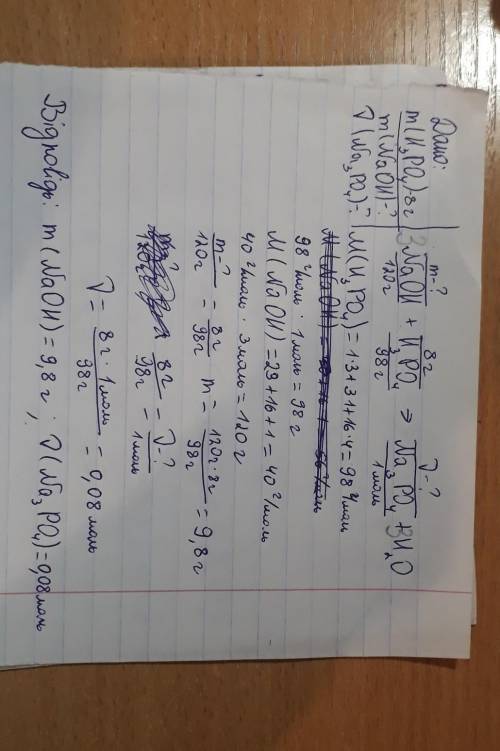 Дано:
m(H₃PO₄)-8г
m(NaOH)-?
ν(Na₃PO₄)-?
m-? 8г ν-?
3NaOH + H₃PO₄ → Na₃PO₄ + 3H₂O
120г 98г 1моль
M(H₃PO₄) = 1·3+31+16·4=98 г/моль
98 г/моль · 1моль = 98г
M(NaOH) = 29+16+1=40 г/моль
40 г/моль · 3моль = 120г
m-?/120г = 8г/98г m = 120г·8г/98г = 9,8г
8г/98г = ν-?/1моль
ν = 8г·1моль/98г = 0,08моль
Відповідь: m(NaOH)=9,8г; ν(Na₃PO₄)=0,08моль